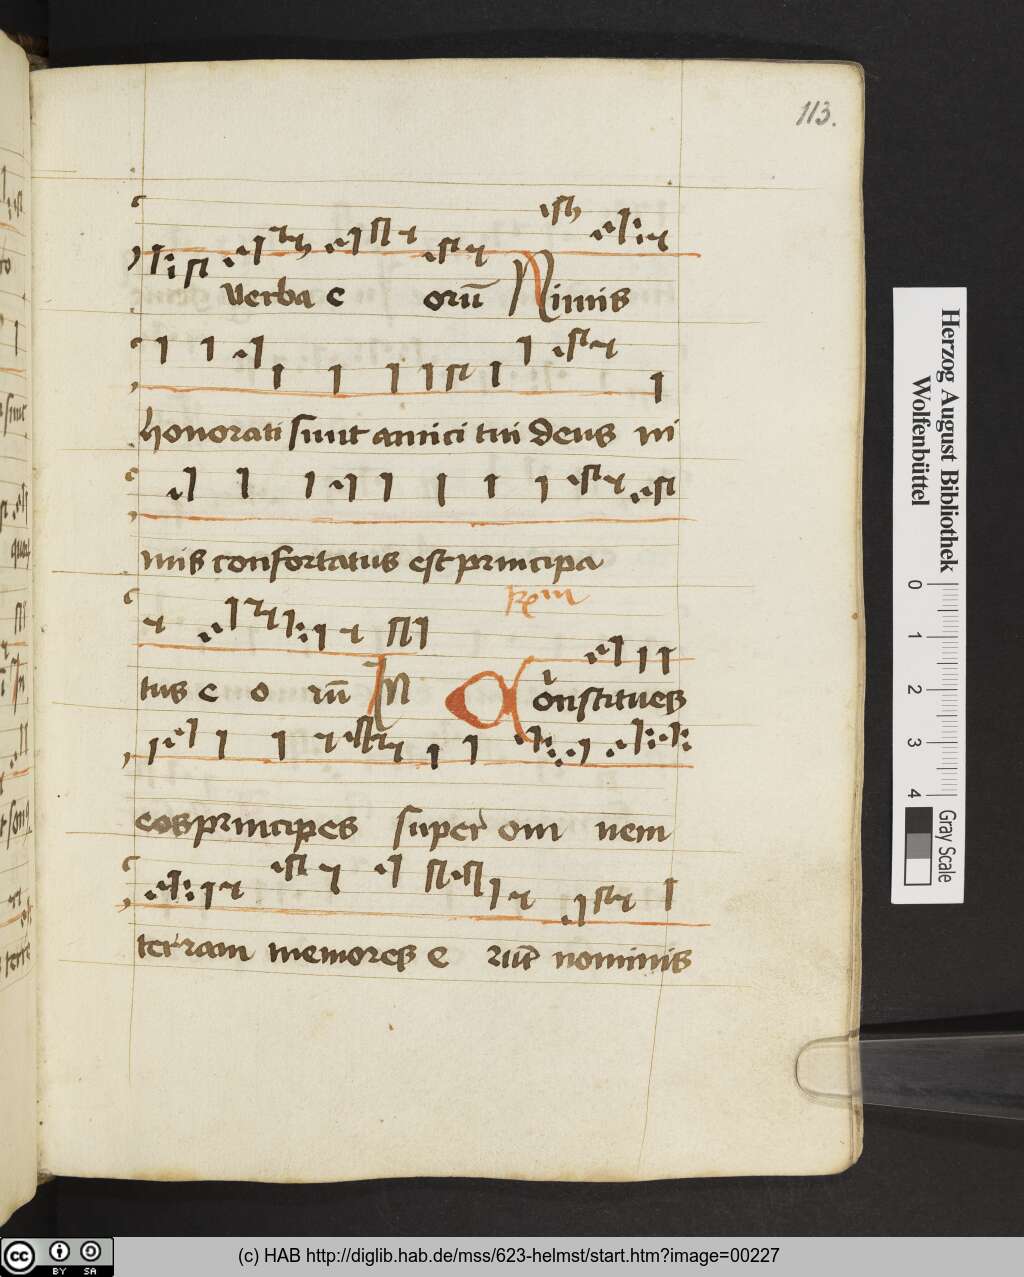 113.
verba e orū Nimis
honorati sunt amici tui deus ni
mis confortatus est principa
tus e o rū In
Constitues
eos principes super om nem
terram memores e nominis
Herzog August Bibliothek
Wolfenbüttel
0 1 2 3 4
Gray Scale
cc BY SA
(c) HAB http://diglib.hab.de/mss/623-helmst/start.htm?image=00227